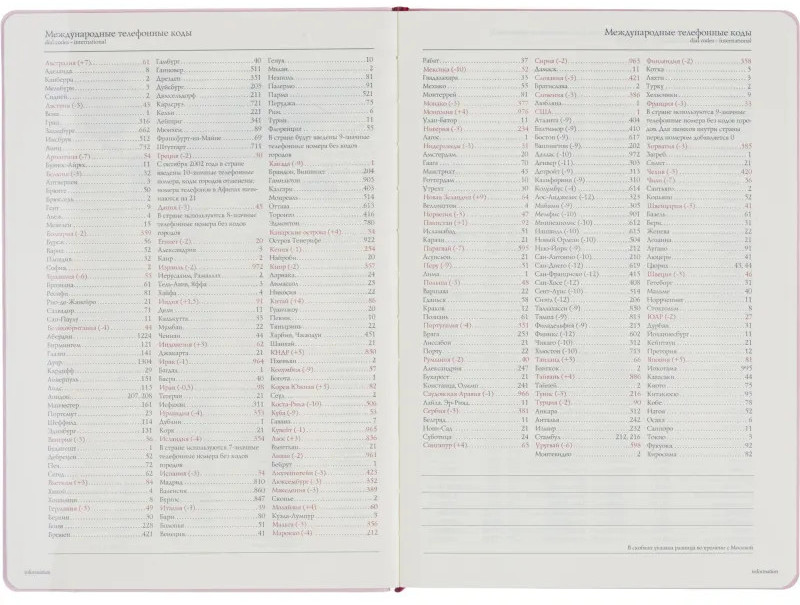 Международные телефонные коды
dial codes - international
Австралия (+7) 61
Аделаида 8
Канберра 2
Мельбурн 3
Сидней 2
Австрия (-2) 43
Вена 1
Грац 316
Зальцбург 662
Инсбрук 512
Линц 732
Аргентина (-7) 54
Буэнос-Айрес 11
Бельгия (-2) 32
Антверпен 3
Брюгге 50
Брюссель 2
Гент 9
Льеж 4
Мехелен 15
Болгария (-2) 359
Бургас 56
Варна 52
Пловдив 32
София 2
Бразилия (-6) 55
Бразилиа 61
Ресифи 81
Рио-де-Жанейро 21
Сальвадор 71
Сан-Паулу 11
Великобритания (-4) 44
Абердин 1224
Бирмингем 121
Глазго 141
Дувр 1304
Кардифф 29
Ливерпуль 151
Лидс 113
Лондон 207, 208
Манчестер 161
Портсмут 23
Шеффилд 114
Эдинбург 131
Венгрия (-3) 36
Будапешт 1
Дебрецен 52
Печ 72
Сегед 62
Вьетнам (+3) 84
Ханой 4
Хошимин 8
Германия (-3) 49
Берлин 30
Бонн 228
Бремен 421
Гамбург 40
Ганновер 511
Дрезден 351
Дуйсбург 203
Дюссельдорф 211
Карлсруэ 721
Кёльн 221
Лейпциг 341
Мюнхен 89
Франкфурт-на-Майне 69
Штутгарт 711
Греция (-2) 30
С сентября 2002 года в стране
введены 10-значные телефонные
номера, коды городов отменены;
номера телефонов в Афинах начи-
наются на 21
Дания (-3) 45
В стране используются 8-значные
телефонные номера без кодов
городов
Египет (-2) 20
Александрия 3
Каир 2
Израиль (-2) 972
Иерусалим, Рамалла 2
Тель-Авив, Яффа 3
Хайфа 4
Индия (+1,5) 91
Дели 11
Калькутта 33
Мумбаи 22
Ченнаи 44
Индонезия (+3) 62
Джакарта 21
Ирак (-1) 964
Багдад 1
Басра 40
Иран (-0,5) 98
Тегеран 21
Исфахан 311
Ирландия (-4) 353
Дублин 1
Корк 21
Исландия (-4) 354
В стране используются 7-значные
телефонные номера без кодов
городов
Испания (-3) 34
Мадрид 810
Валенсия 860
Бургос 847
Италия (-3) 39
Бари 80
Болонья 51
Венеция 41
Генуя 10
Милан 2
Неаполь 81
Палермо 91
Парма 521
Перуджа 75
Рим 6
Турин 11
Флоренция 55
В стране будут введены 9-значные
телефонные номера без кодов
городов
Канада (-9) 1
Брандон, Виннипег 204
Гамильтон 905
Калгари 403
Монреаль 514
Оттава 613
Торонто 416
Эдмонтон 780
Канарские острова (+4) 34
Остров Тенерифе 922
Кения (-1) 254
Найроби 20
Кипр (-2) 357
Ларнака 24
Лимассол 25
Никосия 22
Китай (+4) 86
Гуанчжоу 20
Пекин 10
Тяньцзинь 22
Харбин, Хасыади 451
Шанхай 21
КНДР (+5) 850
Пхеньян 2
Колумбия (-9) 57
Богота 1
Корея Южная (+5) 82
Сеул 2
Коста-Рика (-10) 506
Куба (-9) 53
Гавана 7
Кувейт (-1) 965
Лаос (+3) 856
Вьентьян 21
Ливан (-2) 961
Бейрут 1
Лихтенштейн (-3) 423
Люксембург (-3) 352
Македония (-3) 389
Скопье 2
Малайзия (+4) 60
Куала-Лумпур 3
Мальта (-3) 356
Марокко (-4) 212
information
Международные телефонные коды
dial codes - international
Рабат 37
Мексика (-10) 52
Гвадалахара 33
Мехико 55
Монтеррей 81
Монако (-3) 377
Монголия (+4) 976
Улан-Батор 11
Нигерия (-3) 234
Лагос 1
Нидерланды (-3) 31
Амстердам 20
Гаага 70
Маастрихт 43
Роттердам 10
Утрехт 30
Новая Зеландия (+9) 64
Веллингтон 4
Норвегия (-3) 47
Пакистан (+1) 92
Исламабад 51
Карачи 21
Парагвай (-7) 595
Асунсьон 21
Перу (-9) 51
Лима 1
Польша (-3) 48
Варшава 22
Гданьск 58
Краков 12
Познань 61
Португалия (-4) 351
Брага 253
Лиссабон 21
Порту 22
Румыния (-2) 40
Александрия 247
Бухарест 21
Констанца, Олимп 241
Саудовская Аравия (-1) 966
Лайла, Эр-Рияд 11
Сербия (-3) 381
Белград 11
Нови-Сад 21
Суботица 24
Сингапур (+4) 65
Сирия (-2) 963
Дамаск 11
Словакия (-3) 421
Братислава 2
Словения (-3) 386
Любляна 1
США 1
Атланта (-9) 404
Балтимор (-9) 410
Бостон (-9) 617
Вашингтон (-9) 202
Даллас (-10) 972
Денвер (-11) 303
Детройт (-9) 313
Калифорния (-11) 310
Колумбус (-9) 614
Лос-Анджелес (-12) 323
Майами (-9) 305
Мемфис (-10) 901
Миннеаполис (-10) 612
Нашвилл (-10) 615
Новый Орлеан (-10) 504
Нью-Йорк (-9) 212
Сан-Антонио (-10) 210
Сан-Диего (-12) 619
Сан-Франциско (-12) 415
Сан-Хосе (-12) 408
Сент-Луис (-10) 314
Сиэтл (-12) 206
Таллахасси (-9) 850
Тампа (-9) 813
Филадельфия (-9) 215
Финикс (-12) 602
Чикаго (-10) 312
Хьюстон (-10) 713
Таиланд (+3) 66
Бангкок 2
Тайвань (+4) 886
Тайбей 2
Тунис (-3) 216
Турция (-2) 90
Анкара 312
Анталья 242
Измир 232
Стамбул 212, 216
Уругвай (-6) 598
Монтевидео 2
Финляндия (-2) 358
Котка 5
Лахти 3
Турку 2
Хельсинки 9
Франция (-3) 33
В стране используются 9-значные
телефонные номера без кодов горо-
дов. Для звонков внутри страны
перед номером добавляется 0
Хорватия (-3) 385
Загреб 1
Сплит 21
Чехия (-3) 420
Чили (-7) 56
Сантьяго 2
Копьяпо 52
Швейцария (-3) 41
Базель 61
Берн 31
Женева 22
Лозанна 21
Лугано 91
Люцерн 41
Цюрих 43, 44
Швеция (-3) 46
Гётеборг 31
Мальмё 40
Норрчепинг 11
Стокгольм 8
ЮАР (-2) 27
Дурбан 31
Йоханнесбург 11
Кейптаун 21
Претория 12
Япония (+5) 81
Иокогама 995
Кавасаки 44
Киото 75
Китакюсю 93
Кобе 78
Нагоя 52
Осака 6
Саппоро 11
Токио 3
Фукуока 92
Хиросима 82
В скобках указана разница во времени с Москвой
information